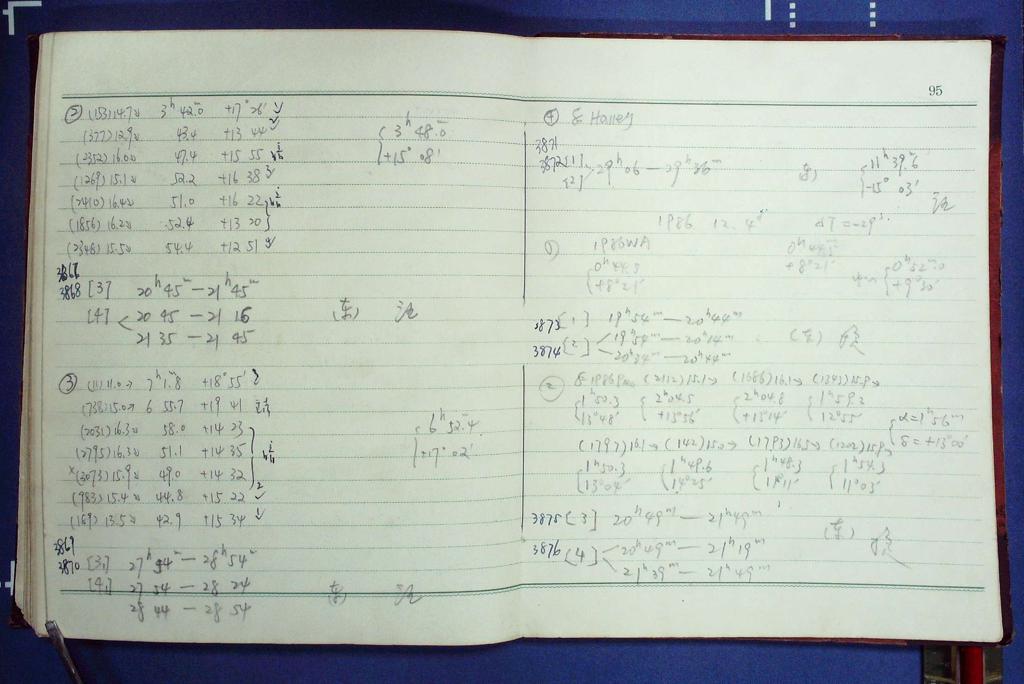 ② (153)14.7 3ʰ 42ᵐ.0 +17° 26′
(377)12.9 43.4 +13 44
(2352)16.0 47.4 +15 55
(1269)15.1 52.2 +16 38
(2410)16.4 51.0 +16 22
(1856)16.2 52.4 +13 20
(2348)15.5 54.4 +12 51
{3ʰ 48ᵐ.0
+15° 08′
3868 [3] 20ʰ45ᵐ—21ʰ45ᵐ
[4] 20 45 —21 15
21 35 —21 45
(东)
③ 7ʰ1ᵐ.8 +18° 55′
(738)15.0 6 55.7 +19 41
(2031)16.3 58.0 +14 23
(2795)16.3 51.1 +14 35
×(2073)15.9 49.0 +14 32
(983)15.4 44.8 +15 22
(169)13.5 42.9 +15 34
{6ʰ 52ᵐ.4
+17° 02′
3870 [3] 27ʰ54ᵐ—28ʰ54ᵐ
[4] 27 54 —28 24
28 44 —28 54
95
④ Halley
3871
3872 [1]
[2] 29ʰ06—29ʰ36ᵐ
{11ʰ39ᵐ.6
-15° 03′
1986. 12. 4 ΔT=-29ˢ
① 1986WA
{0ʰ44.5
+8°21′
0ʰ44ᵐ.5
+8°21′
{0ʰ52ᵐ.0
+9°30′
3873 [1] 19ʰ54ᵐ—20ʰ44ᵐ
3874 [2] 19ʰ54ᵐ—20ʰ14ᵐ
20ʰ34ᵐ—20ʰ44ᵐ
(东)
② (2112)15.1 (1686)16.1
{1ʰ50.3 {2ʰ04.5 {2ʰ04.8 {1ʰ59.2
13°48′ +13°56′ +13°14′ 12°55′
{α=1ʰ56ᵐ
δ=+13°00′
(1797)16.1 (142)15.0 (1793)16.5 (1202)15.8
{1ʰ50.3 {1ʰ49.6 {1ʰ48.3 {1ʰ54.3
13°04′ 14°25′ 14°11′ 11°03′
3875 [3] 20ʰ49ᵐ—21ʰ49ᵐ
3876 [4] 20ʰ49ᵐ—21ʰ19ᵐ
21ʰ39ᵐ—21ʰ49ᵐ
(东)